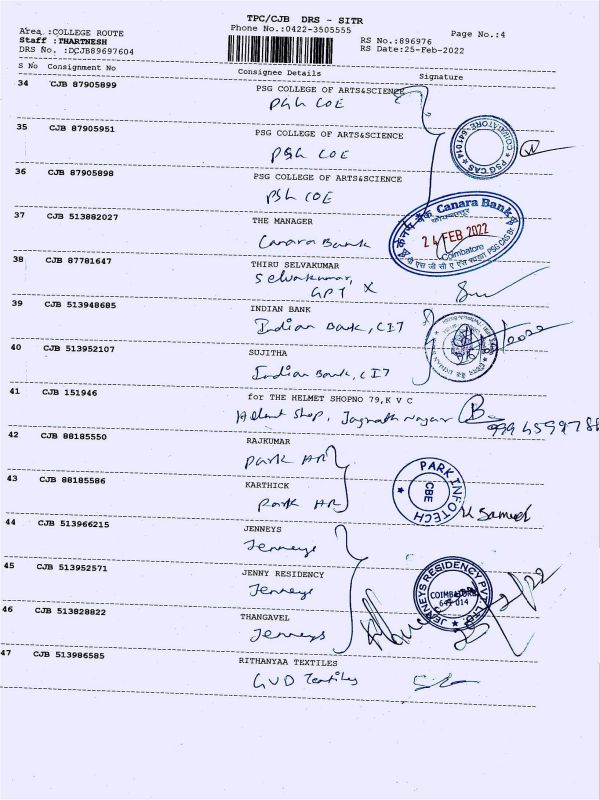 TPC/CJB DRS - SITR
Area :COLLEGE ROUTE
Phone No.:0422-3505555
Page No.:4
Staff : THARTNESH
RS No.:896976
DRS No. :DCJB89697604
RS Date:25-Feb-2022
S No Consignment No Consignee Details Signature
34 CJB 87905899 PSG COLLEGE OF ARTS&SCIENCE
PSG COE
35 CJB 87905951 PSG COLLEGE OF ARTS&SCIENCE
PSG COE
COIMBATORE-641 014 * PSG CAS *
36 CJB 87905898 PSG COLLEGE OF ARTS&SCIENCE
PSG COE
37 CJB 513882027 THE MANAGER
Canara Bank
केनरा बैंक Canara Bank
कोयम्बत्तूर
24 FEB 2022
Coimbatore
38 CJB 87781647 THIRU SELVAKUMAR
Selvakumar,
GPT X
39 CJB 513948685 INDIAN BANK
Indian Bank, CIT
40 CJB 513952107 SUJITHA
Indian Bank, CIT
41 CJB 151946 for THE HELMET SHOPNO 79,K V C
Helmet Shop, Jagnath Nagar
42 CJB 88185550 RAJKUMAR
Park AR
43 CJB 88185586 KARTHICK
Park AR
PARK INFOTECH
CBE
K Samuel
44 CJB 513966215 JENNEYS
Jenneys
45 CJB 513952571 JENNY RESIDENCY
Jenneys
JENNEYS RESIDENCY PVT LTD.
COIMBATORE
641 014
46 CJB 513828822 THANGAVEL
Jenneys
47 CJB 513986585 RITHANYAA TEXTILES
GVD Textiles